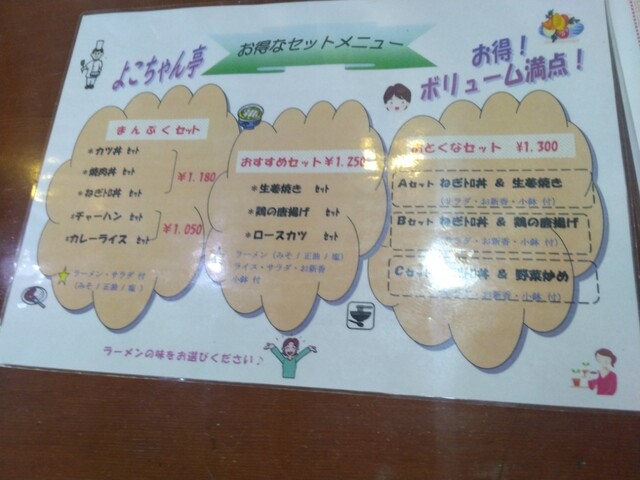 よこちゃん亭
お得なセットメニュー
お得!
ボリューム満点!
まんぷくセット
*カツ丼 セット
*焼肉丼 セット
*ねぎトロ丼 セット
¥1.180
*チャーハン セット
*カレーライス セット
¥1.050
ラーメン・サラダ 付
(みそ / 正油 / 塩)
おすすめセット ¥1.250
*生姜焼き セット
*鶏の唐揚げ セット
*ロースカツ セット
ラーメン(みそ / 正油 / 塩)
ライス・サラダ・お新香
小鉢 付
おとくなセット ¥1.300
Aセット ねぎトロ丼 & 生姜焼き
(サラダ・お新香・小鉢 付)
Bセット ねぎトロ丼 & 鶏の唐揚げ
(サラダ・お新香・小鉢 付)
Cセット 丼 & 野菜炒め
お新香・小鉢 付)
ラーメンの味をお選びください♪